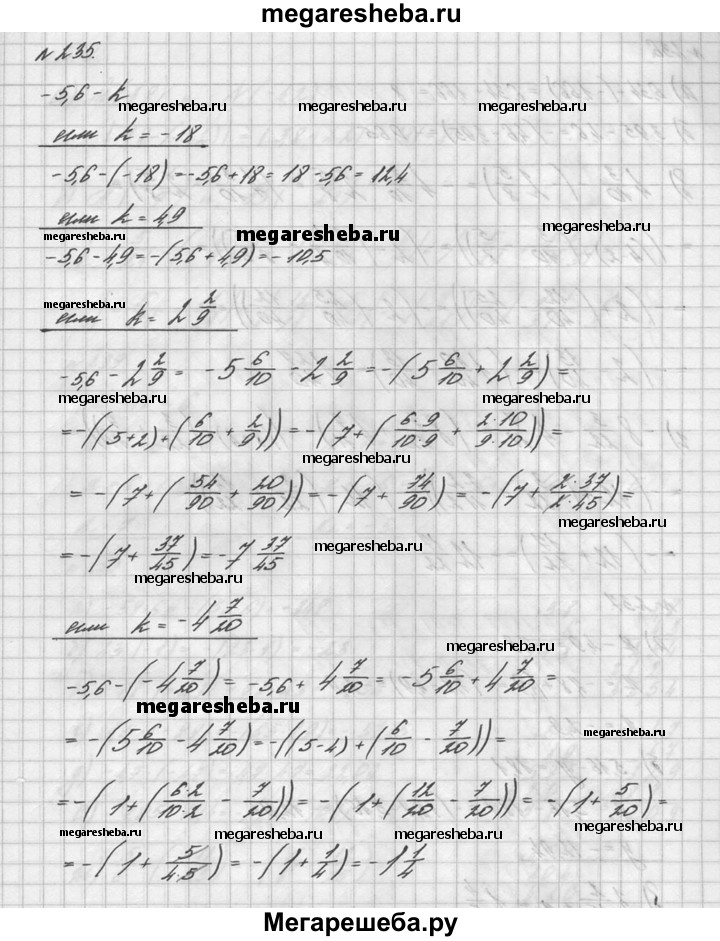 megaresheba.ru
№ 235.
-5,6 - k
megaresheba.ru megaresheba.ru
если k = -18
-5,6-(-18) = -5,6+18 = 18-5,6 = 12,4
если k = 4,9
megaresheba.ru megaresheba.ru megaresheba.ru
-5,6-4,9 = -(5,6+4,9) = -10,5
megaresheba.ru
если k = 2 2/9
-5,6 - 2 2/9 = -5 6/10 - 2 2/9 = -(5 6/10 + 2 2/9) =
megaresheba.ru megaresheba.ru
= -((5+2)+(6/10 + 2/9)) = -(7+(6·9/10·9 + 2·10/9·10)) =
megaresheba.ru megaresheba.ru
= -(7+(54/90 + 20/90)) = -(7+ 74/90) = -(7+ 2·37/2·45) =
megaresheba.ru
= -(7+ 37/45) = -7 37/45
megaresheba.ru
megaresheba.ru
если k = -4 7/20
megaresheba.ru
-5,6-(-4 7/20) = -5,6+ 4 7/20 = -5 6/10 + 4 7/20 =
megaresheba.ru
= -(5 6/10 - 4 7/20) = -((5-4)+(6/10 - 7/20)) =
megaresheba.ru
= -(1+(6·2/10·2 - 7/20)) = -(1+(12/20 - 7/20)) = -(1+ 5/20) =
megaresheba.ru megaresheba.ru megaresheba.ru megaresheba.ru
= -(1+ 5/4·5) = -(1+ 1/4) = -1 1/4
megaresheba.ru megaresheba.ru
Мегарешеба.ру